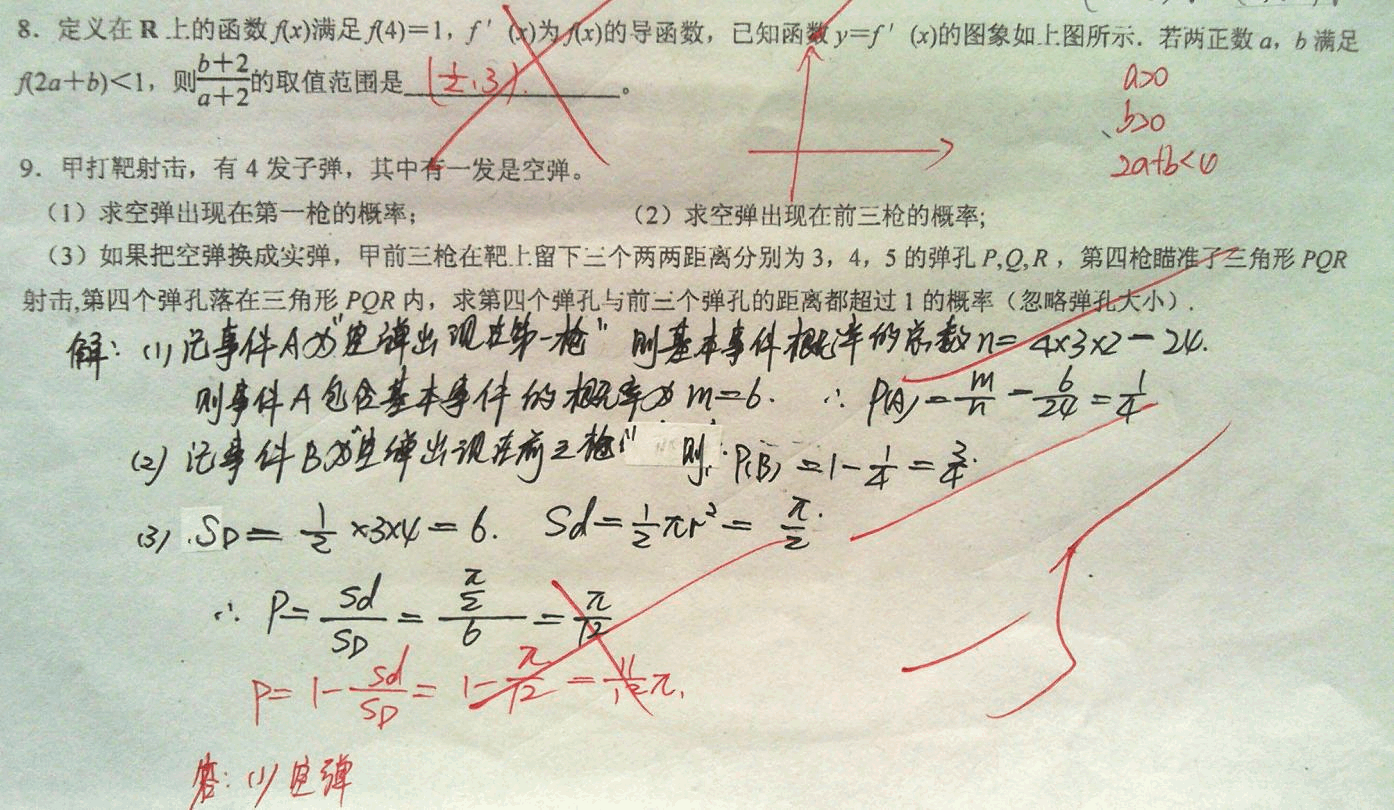 8．定义在 R 上的函数 f(x)满足 f(4)＝1，f′(x)为 f(x)的导函数，已知函数 y＝f′(x)的图象如上图所示．若两正数 a，b 满足
f(2a＋b)<1，则 (b＋2)/(a＋2) 的取值范围是 (1/2,3). 。
a>0
b>0
2a+b<4
9．甲打靶射击，有 4 发子弹，其中有一发是空弹。
（1）求空弹出现在第一枪的概率；（2）求空弹出现在前三枪的概率；
（3）如果把空弹换成实弹，甲前三枪在靶上留下三个两两距离分别为 3，4，5 的弹孔 P,Q,R，第四枪瞄准了三角形 PQR
射击,第四个弹孔落在三角形 PQR 内，求第四个弹孔与前三个弹孔的距离都超过 1 的概率（忽略弹孔大小）．
解：(1) 记事件A为"空弹出现在第一枪" 则基本事件概率的总数n=4×3×2=24.
则事件A包含基本事件的概率为m=6. ∴ P(A)=m/n=6/24=1/4
(2) 记事件B为"空弹出现在前三枪" 则: P(B)=1-1/4=3/4.
(3) SD=1/2×3×4=6. Sd=1/2πr²=π/2.
∴ P=Sd/SD=(π/2)/6=π/12
P=1-Sd/SD=1-π/12=11/12π.
答: (1) 空弹